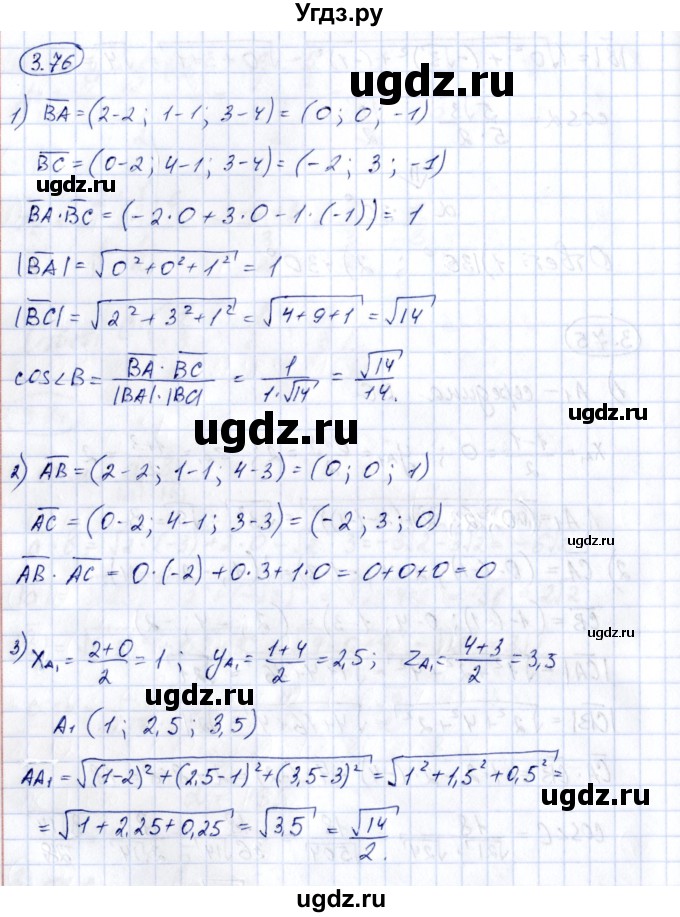 Угдз.ру
3.76
ugdz.ru
1) BA = (2-2; 1-1; 3-4) = (0; 0; -1)
ugdz.ru
BC = (0-2; 4-1; 3-4) = (-2; 3; -1)
ugdz.ru
BA·BC = (-2·0+3·0-1·(-1)) = 1
ugdz.ru
|BA| = √0²+0²+1² = 1
|BC| = √2²+3²+1² = √4+9+1 = √14
ugdz.ru
cos∠B = BA · BC / |BA|·|BC| = 1 / 1·√14 = √14 / 14.
ugdz.ru
2) AB = (2-2; 1-1; 4-3) = (0; 0; 1)
AC = (0-2; 4-1; 3-3) = (-2; 3; 0)
ugdz.ru
AB · AC = 0·(-2)+0·3+1·0 = 0+0+0 = 0
ugdz.ru
3) xA₁ = 2+0 / 2 = 1; yA₁ = 1+4 / 2 = 2,5; zA₁ = 4+3 / 2 = 3,5
A₁ (1; 2,5; 3,5)
ugdz.ru
AA₁ = √(1-2)²+(2,5-1)²+(3,5-3)² = √1²+1,5²+0,5² =
ugdz.ru
= √1+2,25+0,25 = √3,5 = √14 / 2.
ugdz.ru
ugdz.ru